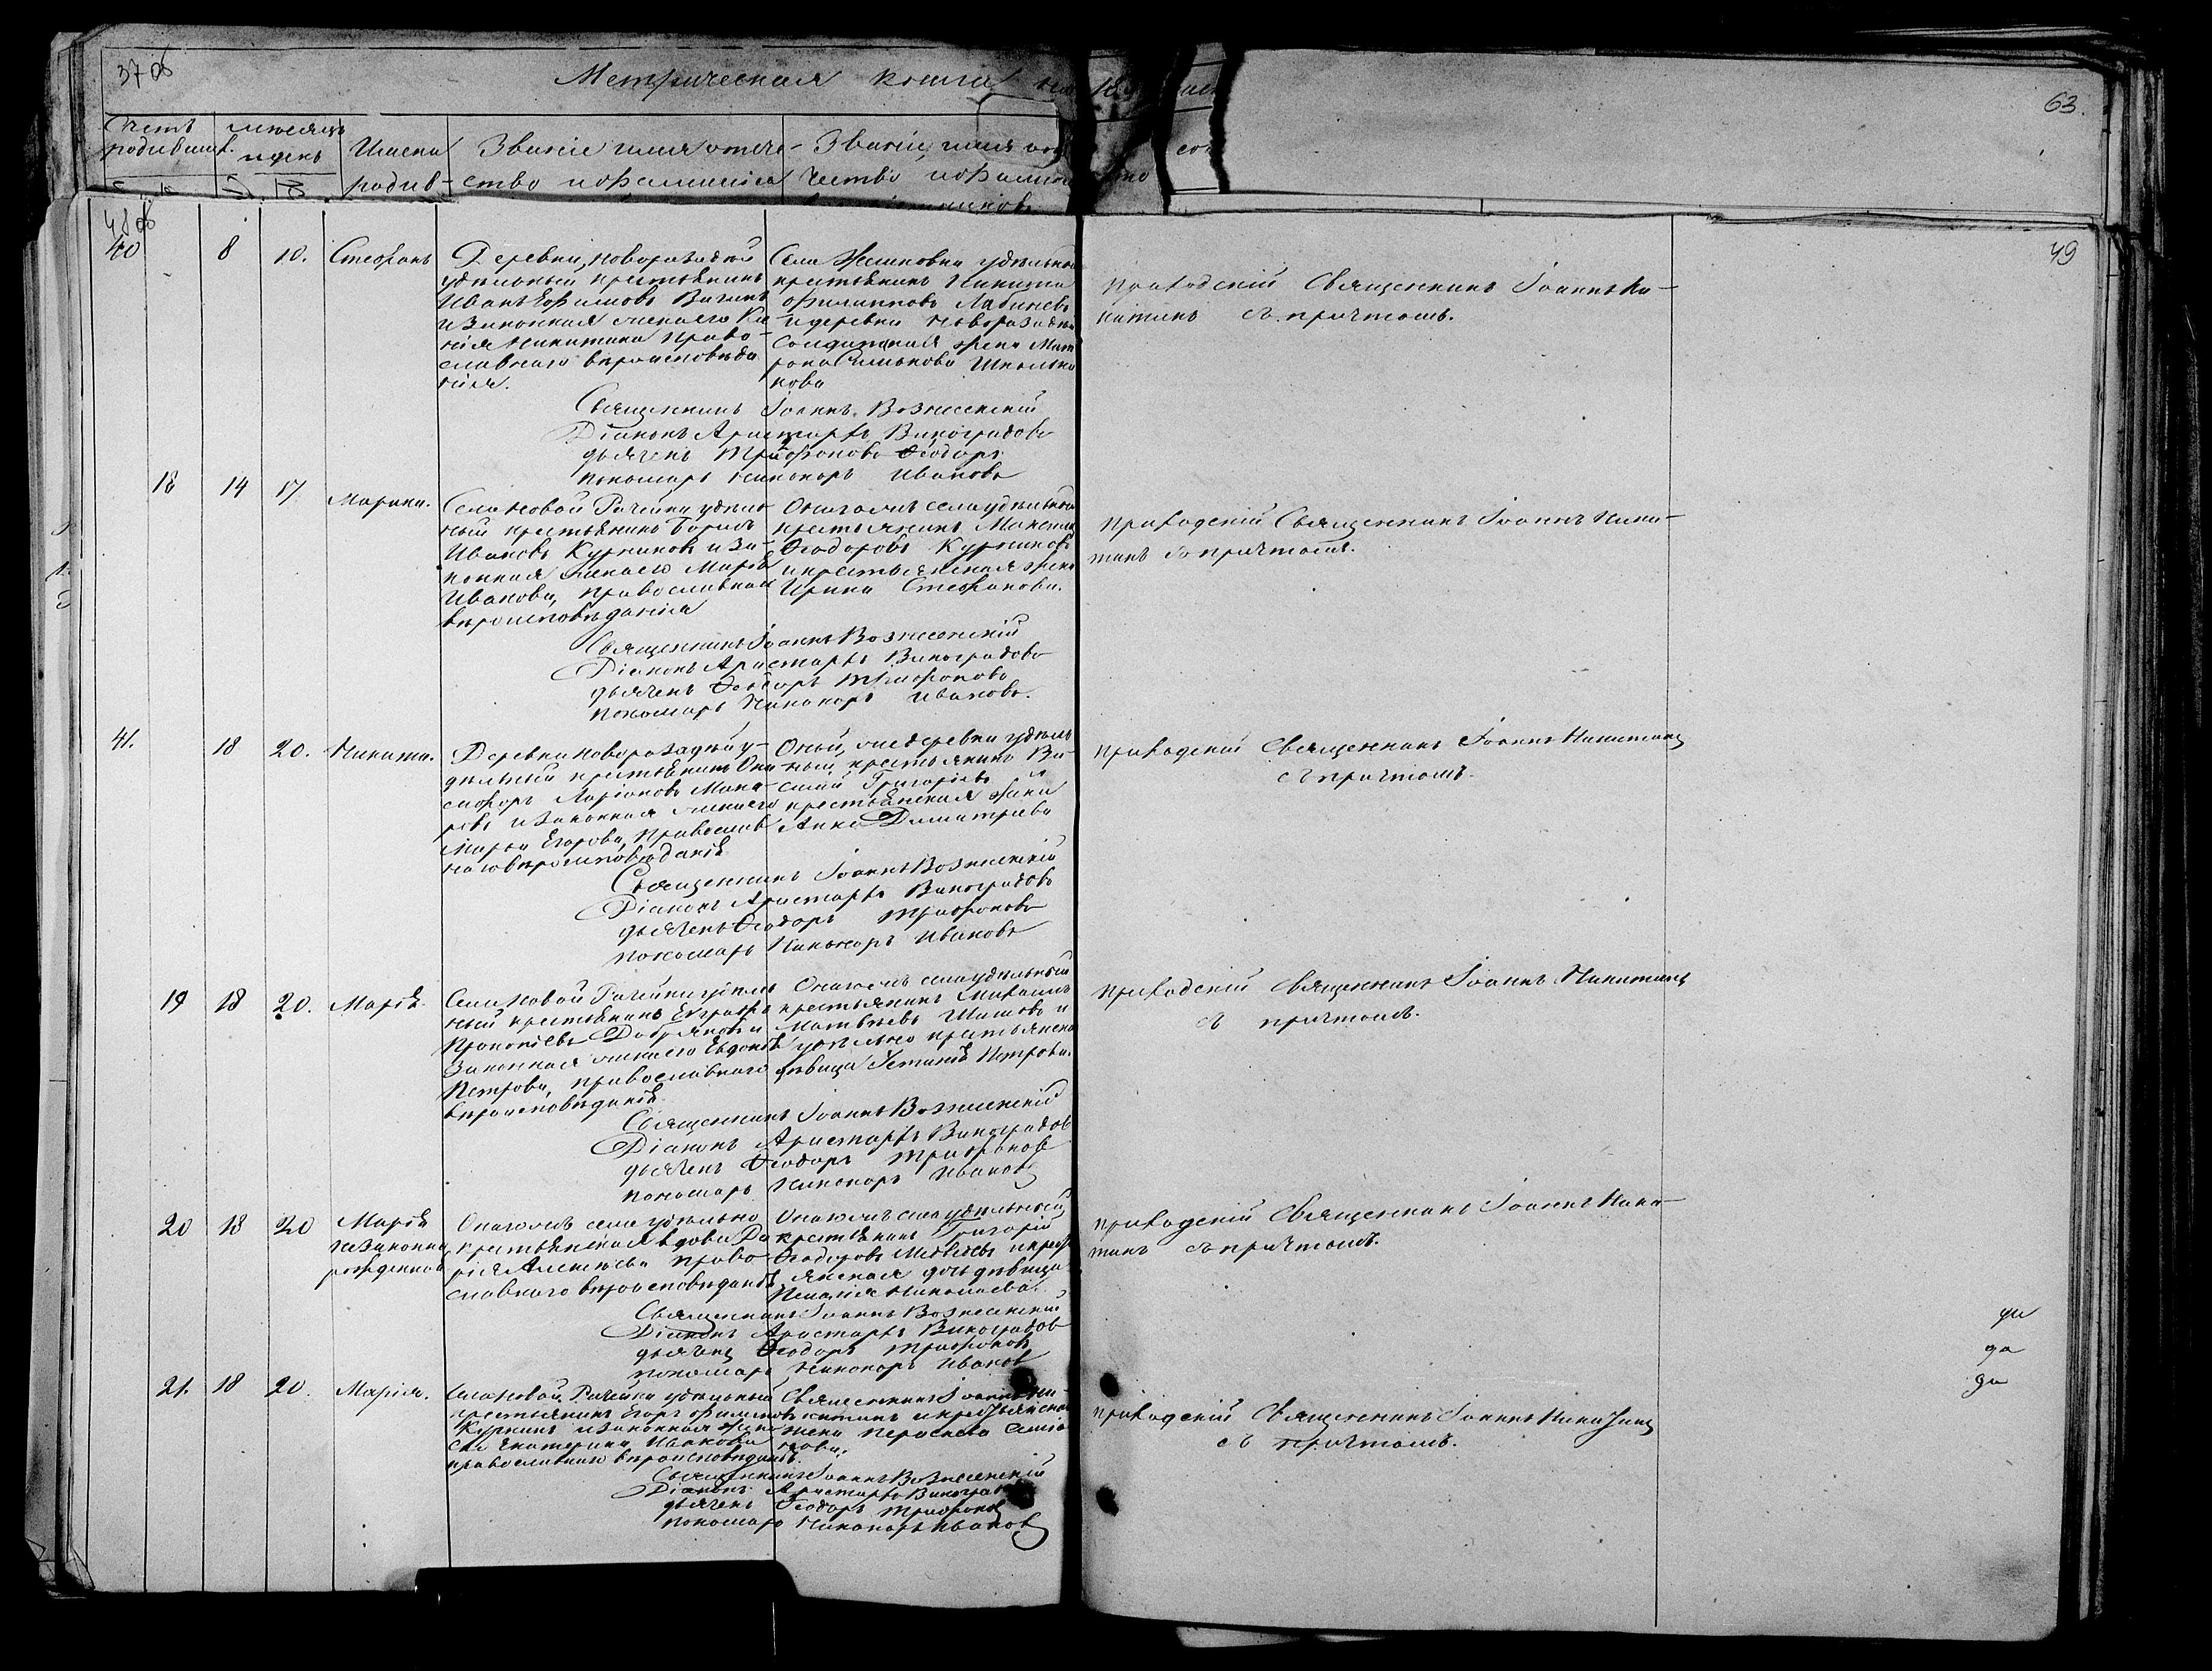 37 об
63.
Метрическая книга на 18
Счетъ родивших.
Мѣсяцъ и день
Имена родив-
Званіе имя отче-
ство и фамилія
Званіе, имя
чество и фамилія
48 об
49
40 8 10. Стефанъ
Деревни, новоразадной
удѣльный крестьянинъ
Иванъ Ефимовъ
и законная жена его
Никитина право-
славнаго вѣроисповѣда
нія.
удѣльной
крестьянинъ Никита
Филиповъ
и деревни новоразадной
солдатская жена Мат
рона
кова
Приходскій Священникъ Іоаннъ Ни-
китинъ съ причтомъ.
Священникъ Іоаннъ Вознесенскій
Діаконъ Аристархъ Виноградовъ
дьячекъ Трифоновъ Ѳеодоръ
пономарь Никаноръ Ивановъ
18 14 17. Марина.
Села Новой Рачейки удѣль
ный крестьянинъ Борисъ
Ивановъ Курниковъ и за-
конная жена его Марѳа
Иванова, православнаго
вѣроисповѣданія
Онагожъ села удѣльной
крестьянинъ Максимъ
Ѳеодоровъ Курниковъ
и крестьянская жена
Ирина Стефанова.
Приходскій Священникъ Іоаннъ Ники-
тинъ съ причтомъ.
Священникъ Іоаннъ Вознесенскій
Діаконъ Аристархъ Виноградовъ
дьячекъ Ѳеодоръ Трифоновъ
пономарь Никаноръ Ивановъ.
41. 18 20. Никита.
Деревни новоразадной у-
дѣльный крестьянинъ Они
симъ Ларіоновъ Мака-
ровъ и законная жена его
Марья Егорова, православ
наго вѣроисповѣданія
Оной же деревни удѣль
ный крестьянинъ Ва-
силій Григорьевъ и
крестьянская жена
Анна Димитріева
Приходскій Священникъ Іоаннъ Никитинъ
съ причтомъ.
Священникъ Іоаннъ Вознесенскій
Діаконъ Аристархъ Виноградовъ
дьячекъ Ѳеодоръ Трифоновъ
пономарь Никаноръ Ивановъ
19 18 20. Марія
Села Новой Рачейки удѣль
ный крестьянинъ Евграфъ
Прокопіевъ Добрянковъ и
законная жена его Евдокія
Петрова, православнаго
вѣроисповѣданія.
Онагожъ села удѣльный
крестьянинъ Михаилъ
Матвѣевъ Шишовъ и
удѣльно крестьянска
дѣвица Устинія Петрова.
Приходскій Священникъ Іоаннъ Никитинъ
съ причтомъ.
Священникъ Іоаннъ Вознесенскій
Діаконъ Аристархъ Виноградовъ
дьячекъ Ѳеодоръ Трифоновъ
пономарь Никаноръ Ивановъ
20 18 20 Марія
незаконно
рожденная
Онагожъ села удѣльно
крестьянская вдова Да
рія Алексѣева право-
славнаго вѣроисповѣданія
Онагожъ села удѣльный
крестьянинъ Григорій
Ѳеодоровъ и кресть
янская дочь дѣвица
Пелагія Николаева.
Приходскій Священникъ Іоаннъ Ники-
тинъ съ причтомъ.
Священникъ Іоаннъ Вознесенскій
Діаконъ Аристархъ Виноградовъ
дьячекъ Ѳеодоръ Трифоновъ
пономарь Никаноръ Ивановъ
да
да
да
21. 18 20. Марія.
Села Новой Рачейки удѣльный
крестьянинъ Егоръ Филиповъ
Куркинъ и законная жена
его Екатерина Иванова
православнаго вѣроисповѣданія.
Священникъ Іоаннъ Ни-
китинъ и крестьянская
жена
нова.
Приходскій Священникъ Іоаннъ Никитинъ
съ причтомъ.
Священникъ Іоаннъ Вознесенскій
Діаконъ Аристархъ Виноградовъ
дьячекъ Ѳеодоръ Трифоновъ
пономарь Никаноръ Ивановъ